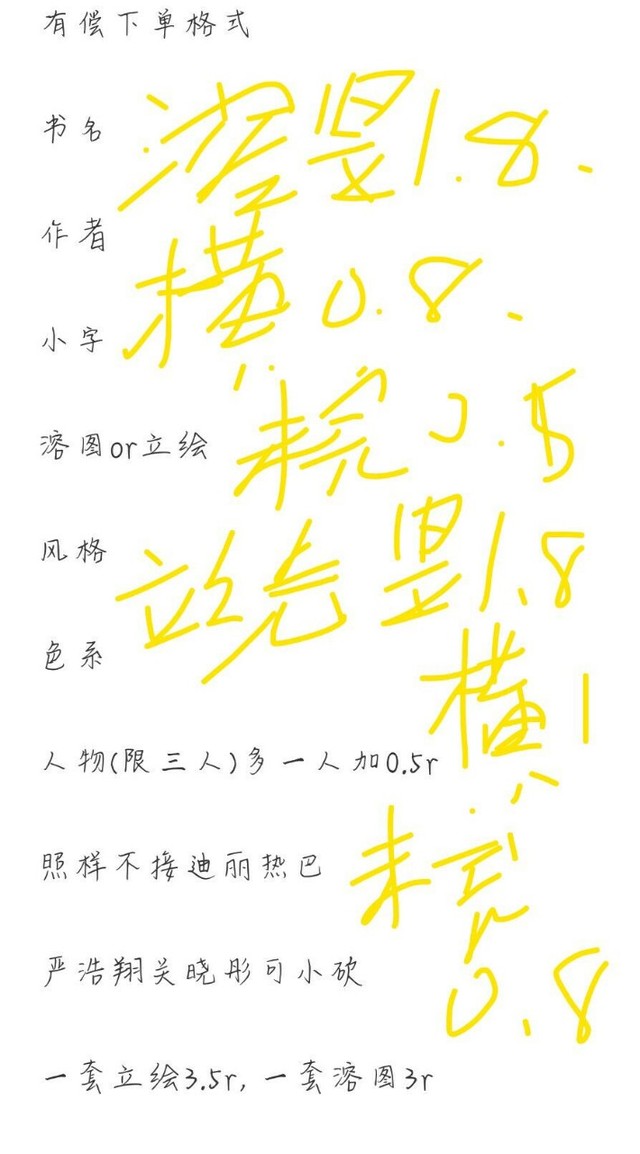 有偿下单格式
书名
溶竖1.8.
作者
横0.8.
小字
未完0.5
溶图or立绘
风格
立绘竖1.8
色系
横1
人物(限三人)多一人加0.5r
照样不接迪丽热巴
未完
0.8
严浩翔关晓彤可小砍
一套立绘3.5r,一套溶图3r